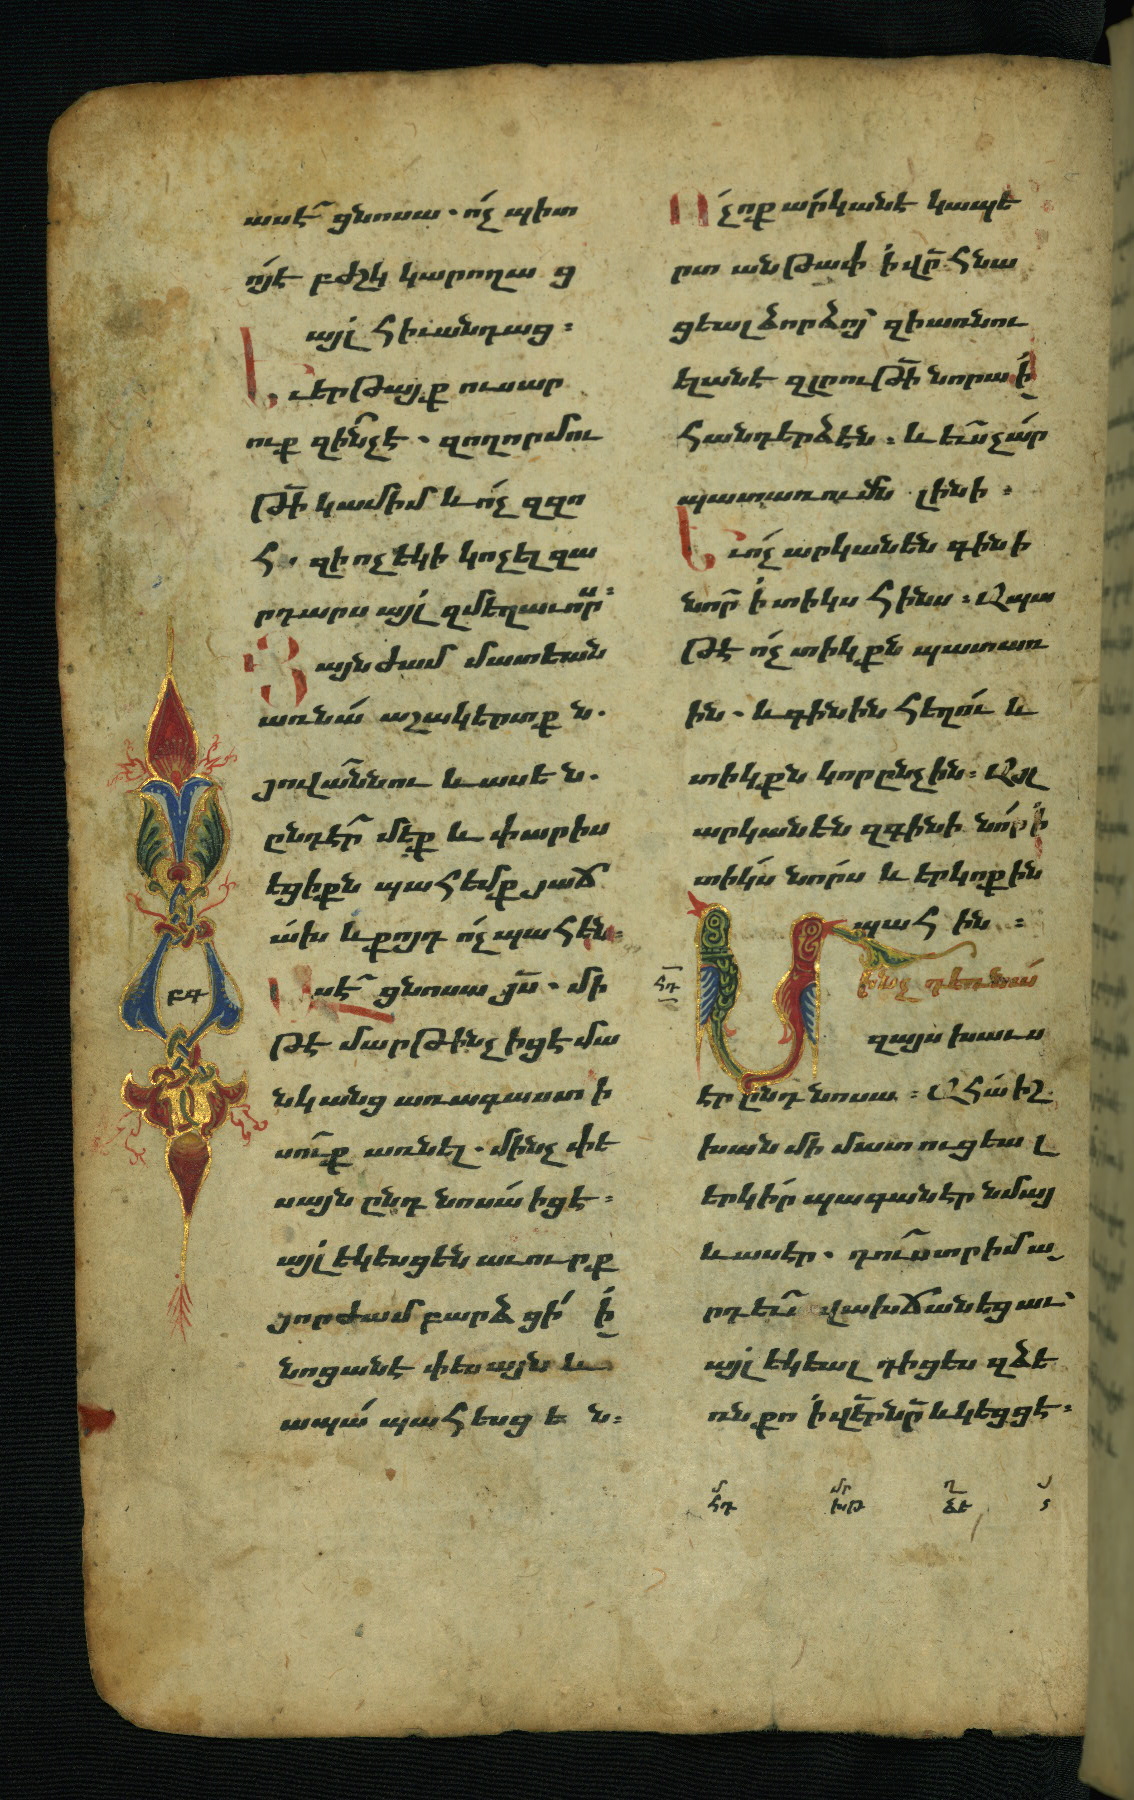 ասէ՜ ցնոսա. ո՛չ պիտ
ո՛յէ բժշկ կարողա ց
այլ հիւանդաց :
Երթայք ուսար
ուք զի՞նչէ . զողորմու
թի՜ կամիմ և ո՛չ զզո
հ . զի ոչ եկի կոչել զա
րդարս այլ զմեղաւո՜րս :
Յայնժամ մատեան
առնա՛ աշակերտք ն.
յովա՜ննու և ասեն.
ընդէ՞ր մեք և փարիս
եցիքն պահեմք յաճ
ախ և քոյդ ո՛չ պահեն:
Ասէ՜ ցնոսա յս՜ . մի
թէ մարթինչ իցէ մա
նկանց առագաստ ի
սո՜ւք առնել . մինչ փե
սայն ընդ նոսա՛ իցէ :
այլ եկեսցեն աւուրք
յորժամ բարձ ցի՛ ի՛
նոցանէ փեսայն և
ապա՛ պահեսց ե ն:
Ո՛չոք արկանէ կապե
րտ անթափ ի՛ վր՜ հնա
ցեալ ձորձոյ՝ զի առնու
ելանէ զլրութի՜ նորա ի՛
հանդերձէն : և ևս՜ չար
պատառումն լինի :
Եւ ո՛չ արկանեն գինի
նո՜ր ի՛ տիկս հինս : Ապա
թէ ո՛չ տիկքն պատառ
ին . և գինին հեղու և
տիկքն կորընչին : Այլ
արկանեն զգինի նո՛ր ի՛
տիկս նո՛րս և երկոքին
պահ ին :
հդ
Մինչ դեռ նա՛
զայս խաւս
էր ընդ նոսա : Ահա՛ իշ
խան մի մատուցեա լ
երկի՛ր պագանէր նմայ
և ասէր . դո՜ւստր իմ ա
րդ ևս՜ վախճանեցաւ՝
այլ եկեալ դիցես զձե
ռն քո ի՛ վե՜րնր՜ և կեցցէ :
բգ
մ հդ
մր խթ
ղ ձէ